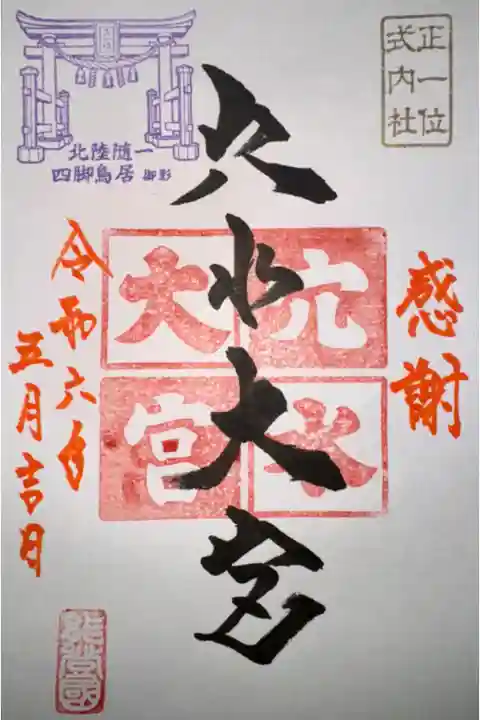 正一位
式内社
感謝
穴水大宮
穴水
大宮
北陸随一
四脚鳥居 御影
令和六年
五月吉日
能登國